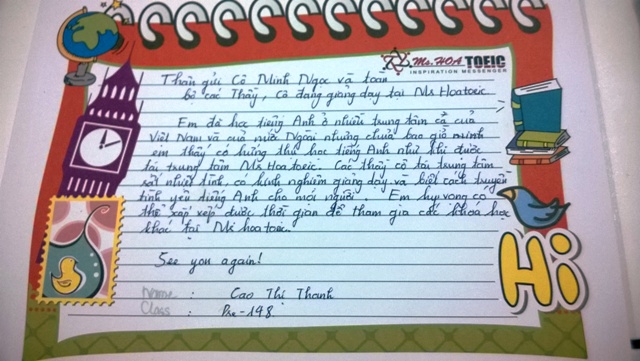 Ms.HOA TOEIC
INSPIRATION MESSENGER
Thân gửi Cô Minh Ngọc và toàn
bộ các Thầy, Cô đang giảng dạy tại Ms Hoatoeic
Em đã học tiếng Anh ở nhiều trung tâm cả của
Việt Nam và của nước Ngoài nhưng chưa bao giờ mình
em thấy có hứng thú học tiếng Anh như khi được
tại trung tâm Ms Hoatoeic. Các thầy cô tại trung tâm
rất nhiệt tình, có kinh nghiệm giảng dạy và biết cách truyền
tình yêu tiếng Anh cho mọi người. Em hy vọng có
thể xắp xếp được thời gian để tham gia các khóa học
khác tại Ms hoatoeic.
See you again!
Name : Cao Thị Thanh
Class : Pre-148
Hi